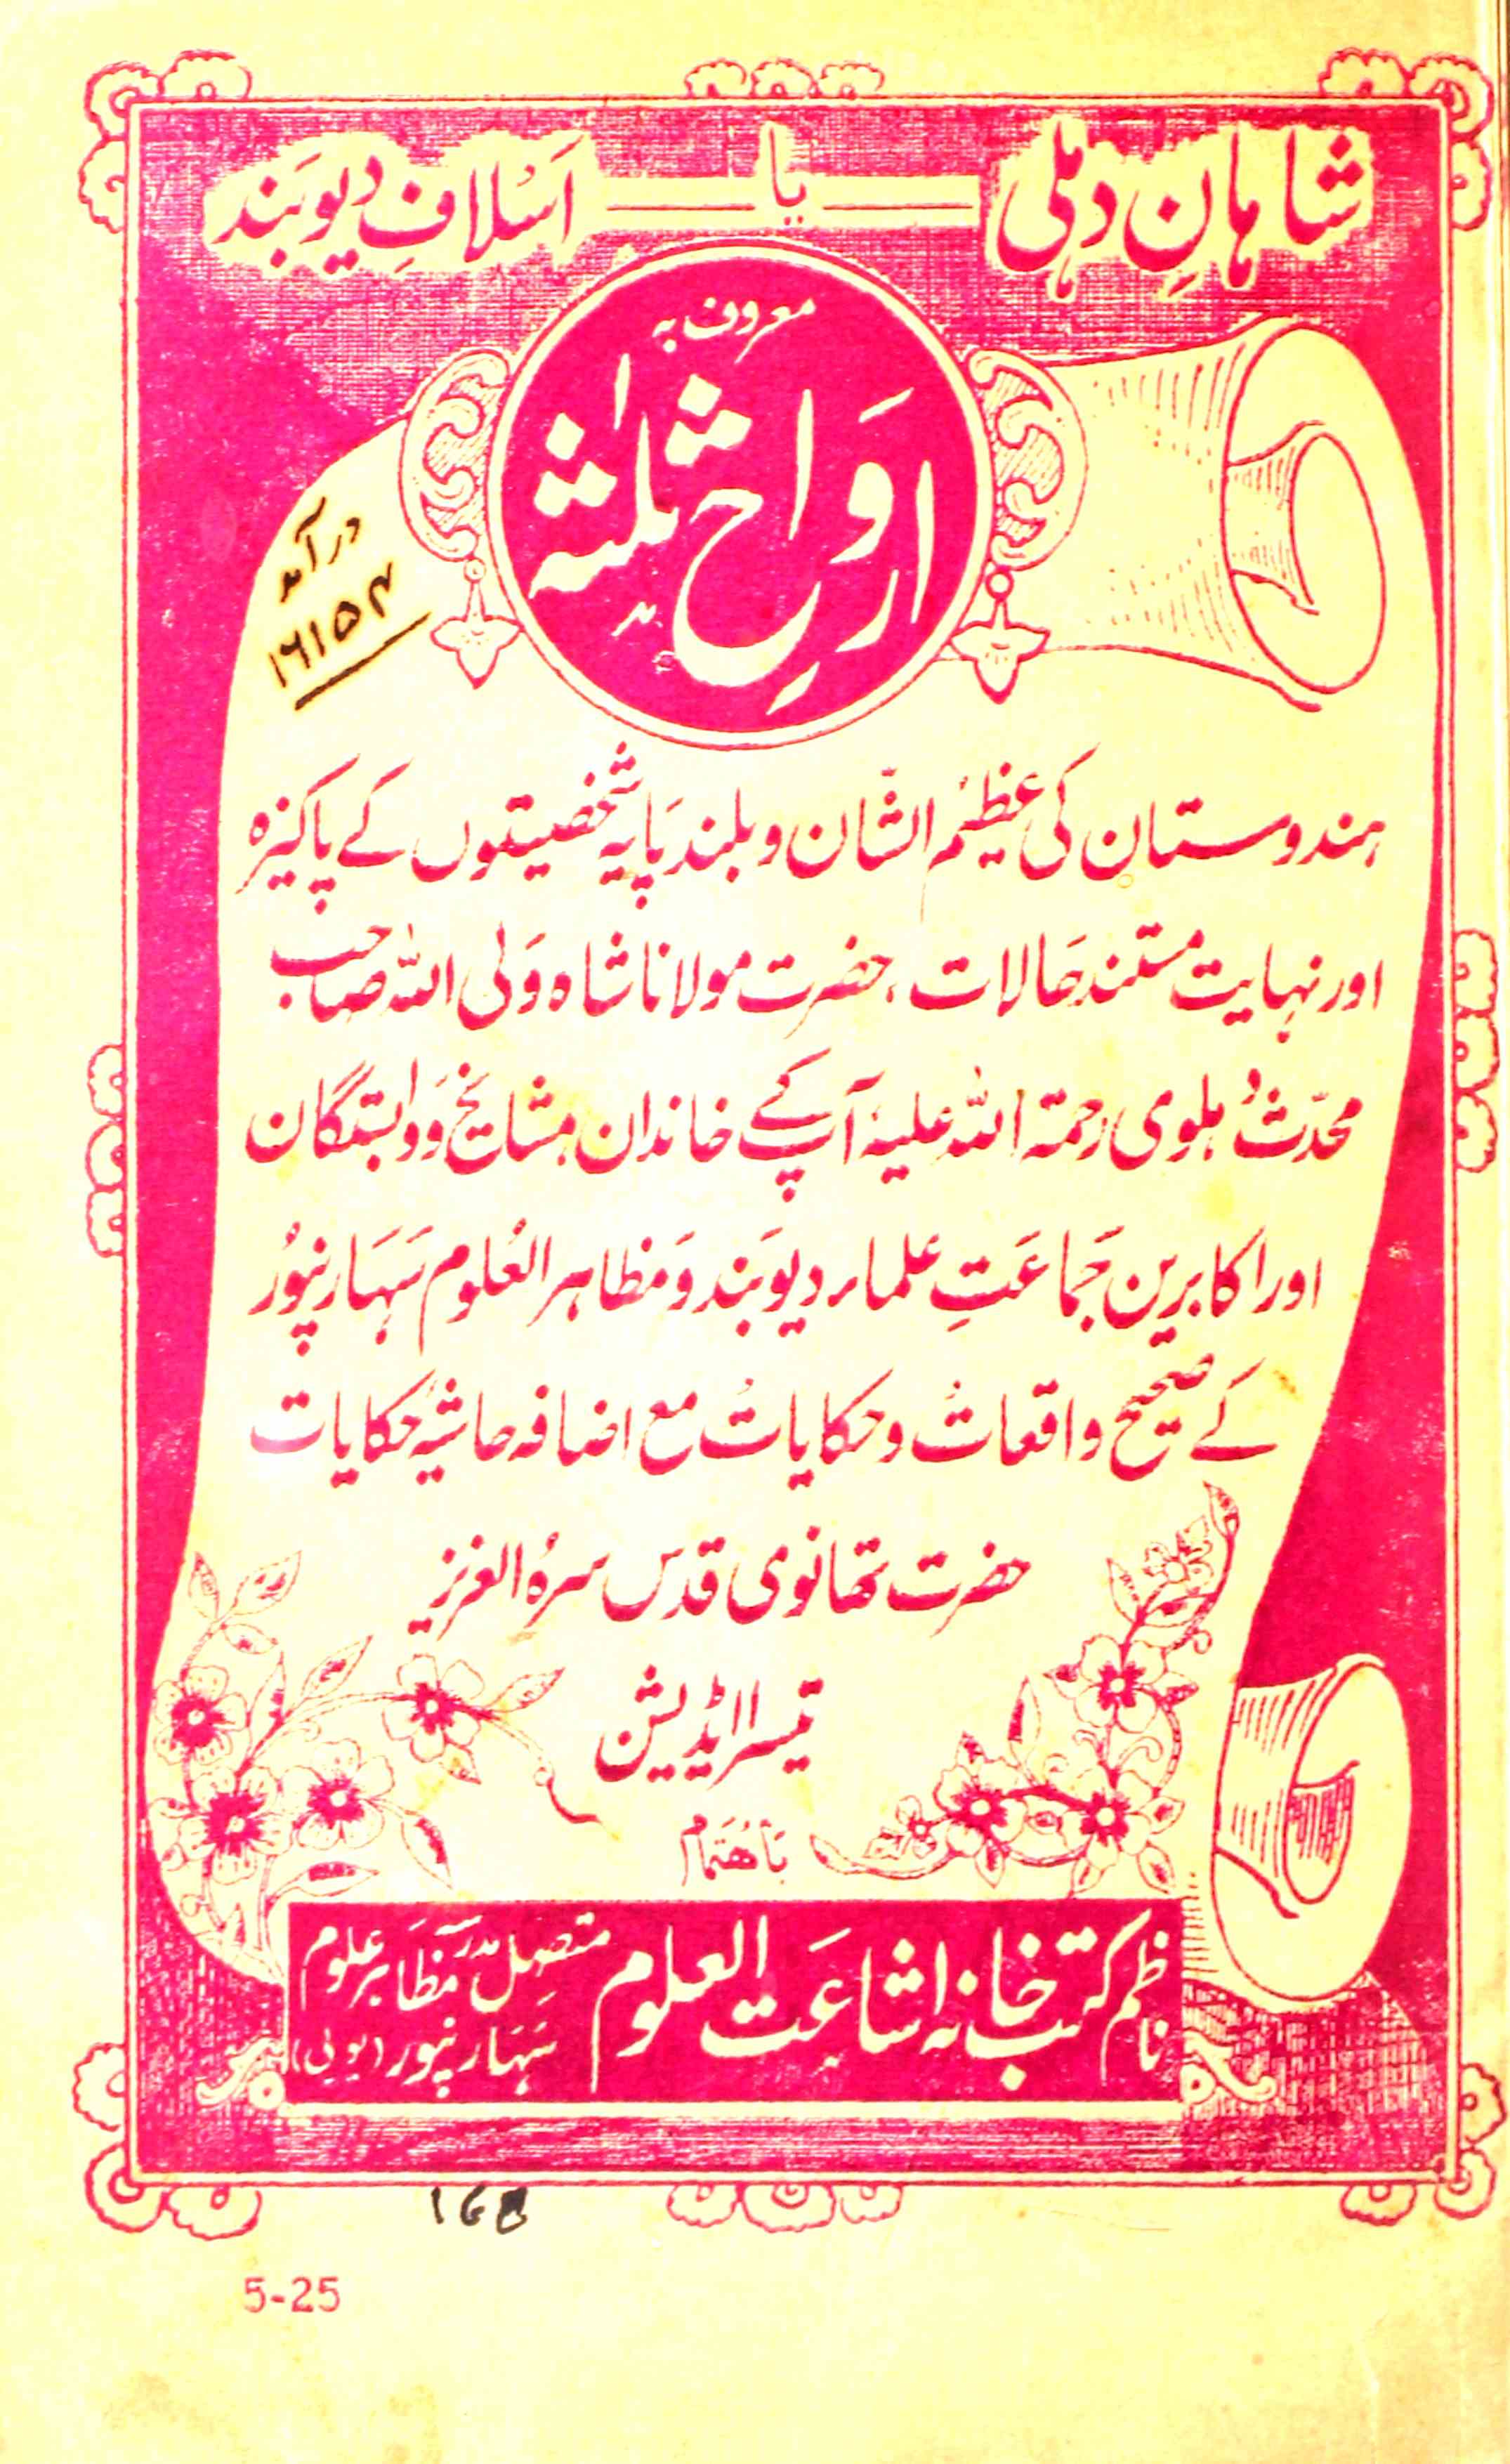 شاہانِ دہلی — یا — اَسْلافِ دیوبَند
معروف بہ
اَرواحِ ثلٰثہ
درآمد
۱۶۱۵۴
ہندوستان کی عظیمُ الشّان و بلند پَایہ شخصیتوں کے پاکیزہ
اور نہایت مستند حَالات، حضرت مولانا شاہ وَلی اللہ صاحب
محدّث دُہلوی رحمۃ اللہ علیہ آپ کے خاندان مشائخ وَ وابستگان
اور اکابرین جَماعَتِ علماء دیوبَند وَ مَظاہر العُلوم سَہَارنپُور
کے صحیح واقعات و حکایات مع اضافہ حاشیہ حکایات
حضرت تھانوی قدس سرہُ العزیز
تیسرا ایڈیشن
بَاہتمَام
ناظم کتب خانہ اشاعَت العلوم متصل مدرسہ مَظَاہر علوم
سَہَارنپور (یوپی)
۱۶۸
5-25